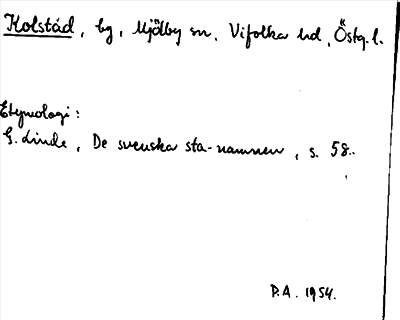 Kolstad, by, Mjölby sn, Vifolka hd, Östg. l.
Etymologi:
G. Linde, De svenska sta-namnen, s. 58.
P.A. 1954.